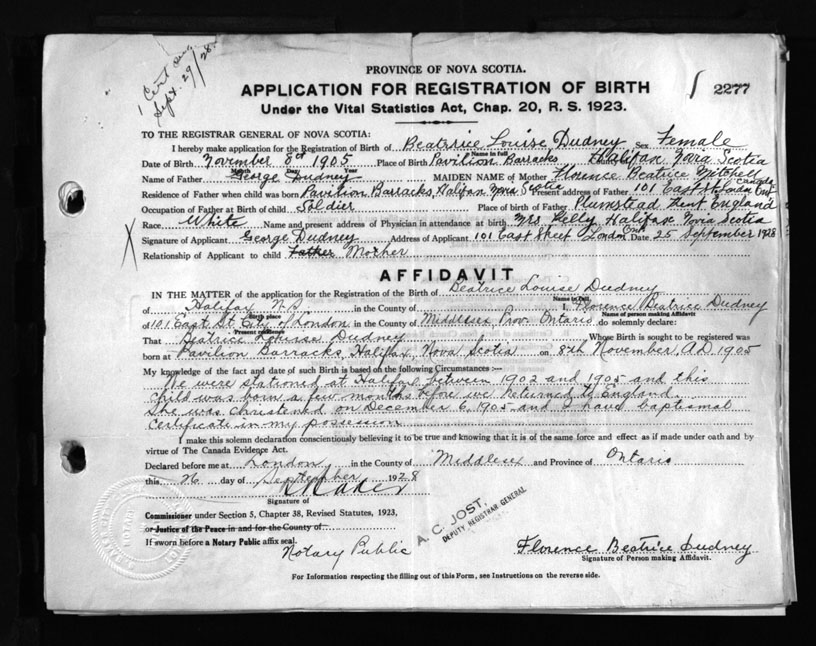 1 Cert
Sept. 29/28.
PROVINCE OF NOVA SCOTIA.
APPLICATION FOR REGISTRATION OF BIRTH
2277
Under the Vital Statistics Act, Chap. 20, R. S. 1923.
TO THE REGISTRAR GENERAL OF NOVA SCOTIA:
I hereby make application for the Registration of Birth of Beatrice Louise Dudney Sex Female
Name in full
Date of Birth November 8th 1905 Place of Birth Pavilion Barracks Halifax Nova Scotia
Month Day Year
Name of Father George Dudney MAIDEN NAME of Mother Florence Beatrice Mitchell
Residence of Father when child was born Pavilion Barracks, Halifax Nova Scotia Present address of Father 101 East St London Ont Canada
Occupation of Father at Birth of child Soldier Place of birth of Father Plumstead Kent England
Race White Name and present address of Physician in attendance at birth Mrs Kelly Halifax Nova Scotia
Signature of Applicant George Dudney Address of Applicant 101 East Street London Ont Date 25 September 1928
Relationship of Applicant to child Father Mother
AFFIDAVIT
IN THE MATTER of the application for the Registration of the Birth of Beatrice Louise Dudney
Name in full
of Halifax N.S. in the County of I, Florence Beatrice Dudney
Birth place Name of person making Affidavit
of 101 East St City of London in the County of Middlesex Prov. Ontario do solemnly declare:
Present residence
That Beatrice Louise Dudney Whose Birth is sought to be registered was
born at Pavilion Barracks, Halifax, Nova Scotia on 8th November, A.D. 1905
My knowledge of the fact and date of such Birth is based on the following Circumstances :—
We were stationed at Halifax between 1902 and 1905 and this
child was born a few months before we returned to England.
She was christened on December 6, 1905 and I have baptismal
certificate in my possession
I make this solemn declaration conscientiously believing it to be true and knowing that it is of the same force and effect as if made under oath and by
virtue of The Canada Evidence Act.
Declared before me at London in the County of Middlesex and Province of Ontario
this 26 day of September 1928
Signature of
Commissioner under Section 5, Chapter 38, Revised Statutes, 1923,
or Justice of the Peace in and for the County of
If sworn before a Notary Public affix seal.
Notary Public
A. C. JOST,
DEPUTY REGISTRAR GENERAL
Florence Beatrice Dudney
Signature of Person making Affidavit.
For Information respecting the filling out of this Form, see Instructions on the reverse side.